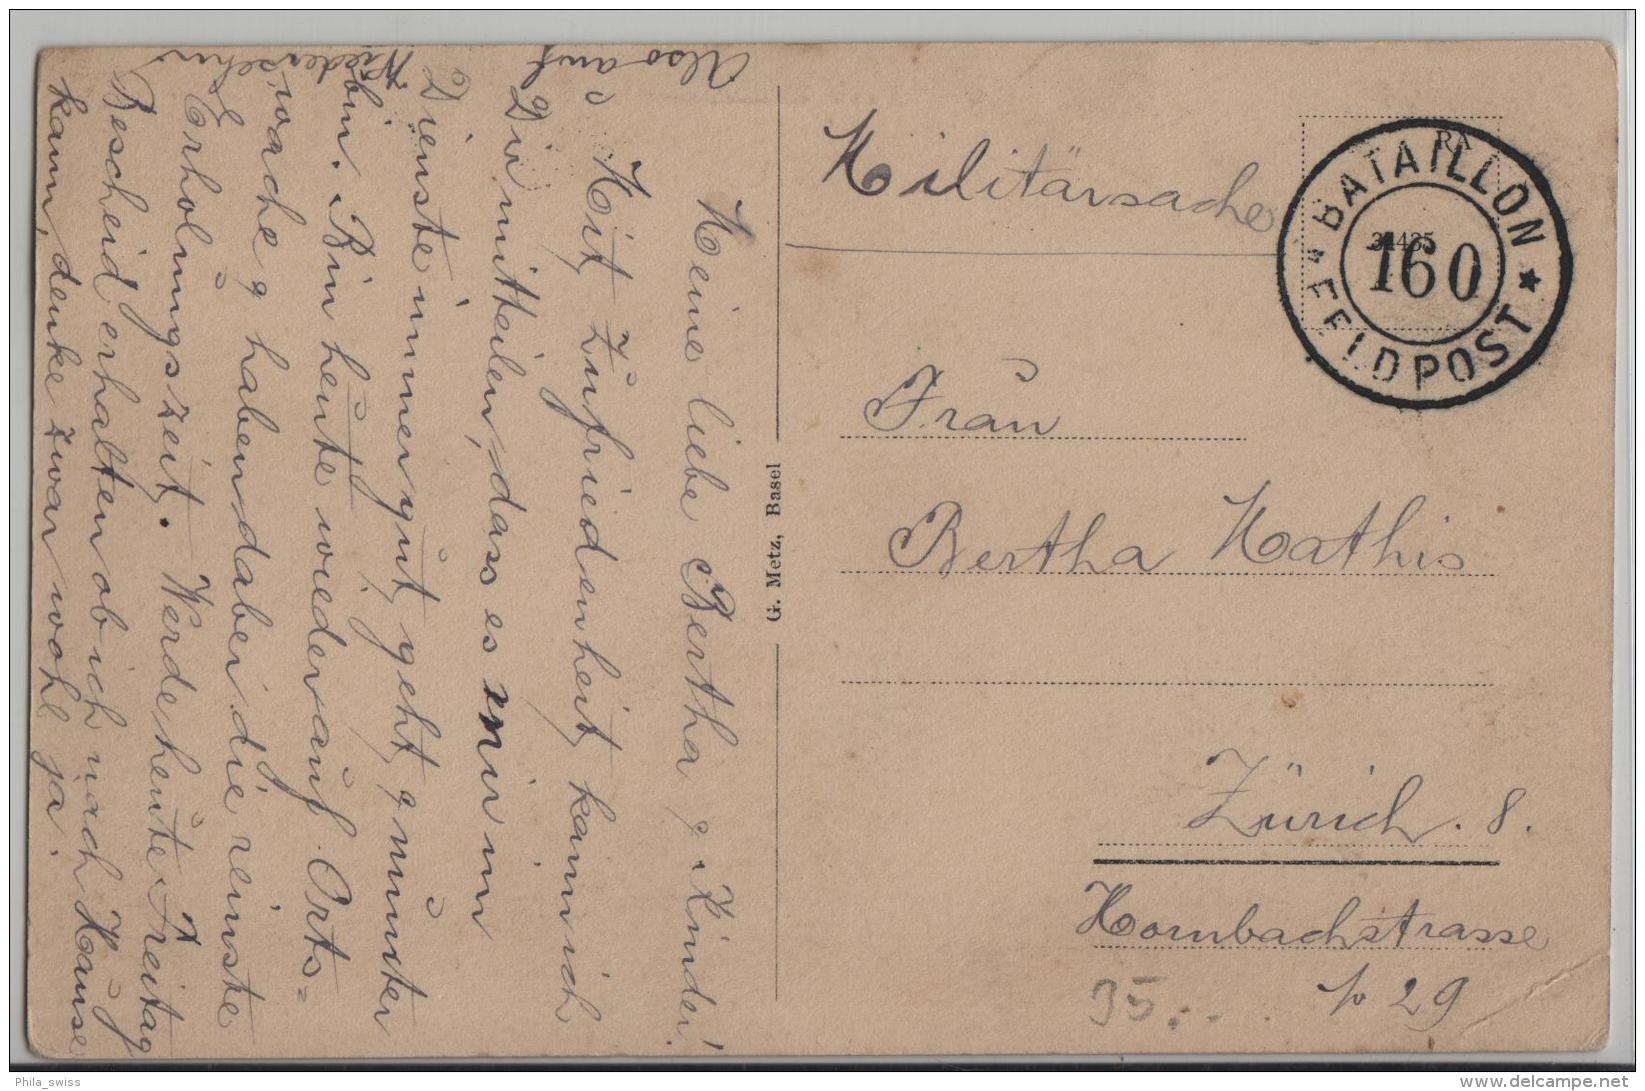 Meine liebe Bertha & Kinder!
Mit Zufriedenheit kann ich
Dir mitteilen, dass es mir im
Dienste immer gut geht & munter
bin. Bin heute wieder auf Orts=
wache & haben dabei die reinste
Erholungszeit. Werde heute Freitag
Bescheid erhalten ob ich nach Hause
kann, denke zwar wohl ja.
Also auf
Wiedersehn
G. Metz, Basel
Militärsache
RA
34435
BATAILLON
160
FELDPOST
Frau
Bertha Mathis
Zürich. 8.
Hornbachstrasse
No 29
35.-
Phila_swiss
delcampe.net